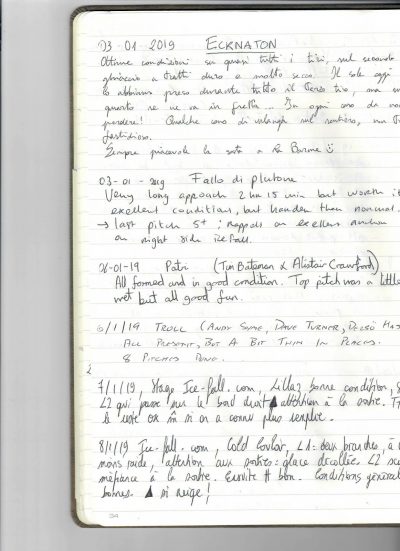 03-01-2019 ECKNATON
Ottime condizioni su quasi tutti i tiri, sul secondo
ghiaccio a tratti duro e molto secco. Il sole oggi
lo abbiamo preso durante tutto il terzo tiro, ma
questo se ne va in fretta... In ogni caso da non
perdere! Qualche cono di valanga sul sentiero, non
fastidioso.
Sempre piacevole la sosta a la Barme ☺
03-01-2019 Fallo di plutone
Very long approach 2h 15 min but worth it
excellent conditions, but harder than normal.
→ last pitch 5+; rappels on excellent anchor
on right side icefall.
26-01-19 Patri (Tim Bateman & Alistair Crawford)
All formed and in good condition. Top pitch was a little
wet but all good fun.
6/1/19 TROLL (ANDY SYME, DAVE TURNER,
ALL PRESENT, BUT A BIT THIN IN PLACES.
8 PITCHES DONE.
7/1/19, Stage Ice-fall.com, Lillaz bonne condition,
L2 qui passe sur le bad dessus ▲ attention à la sortie.
le reste OK m̂ si on a connu plus rempli.
8/1/19 Ice-fall.com, Cold Couloir, L1: deux branches, à
moins raide, attention aux sorties: glace décollée. L2
méfiance à la sortie. Ensuite # bon. Conditions
bonnes. ▲ si neige!
34